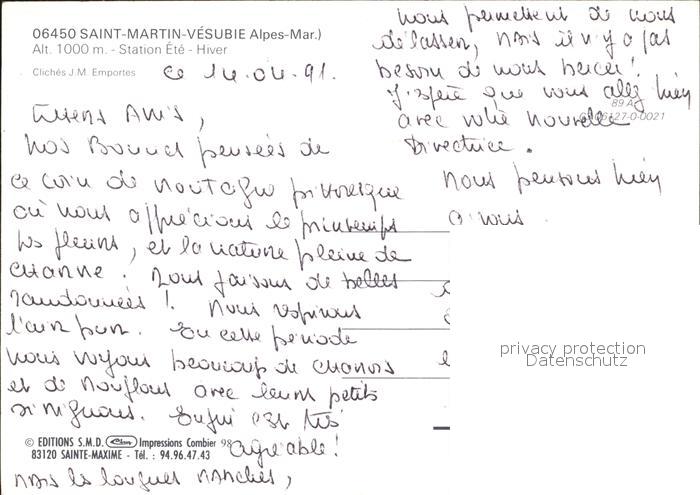 06450 SAINT-MARTIN-VÉSUBIE Alpes-Mar.)
Alt. 1000 m. - Station Été - Hiver
Clichés J.M. Emportes
Ce 14.04.91.
Chers Amis,
Nos Bonnes pensées de
ce coin de montagne pittoresque
où nous apprécions le printemps
les fleurs, et la nature pleine de
charme. Nous faisons de belles
randonnées ! Nous respirons
l'air pur. En cette période
nous voyons beaucoup de chamois
et de mouflons avec leurs petits
si mignons. Enfin c'est très
agréable !
© EDITIONS S.M.D. Impressions Combier 98
83120 SAINTE-MAXIME - Tél. : 94.96.47.43
Mais les longues marches,
nous permettent de nous
délasser, mais il n'y a pas
besoin de nous bercer !
J'espère que vous allez bien
avec votre nouvelle
Directrice.
89 A
06127-0-0021
Nous pensons bien
à vous
privacy protection
Datenschutz